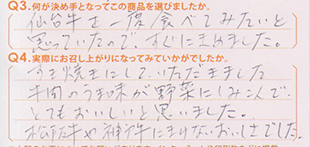 Q3.何が決め手となってこの商品を選びましたか。
仙台牛を一度食べてみたいと
思っていたので、すぐにきめました。
Q4.実際にお召し上がりになってみていかがでしたか。
すき焼きにしていただきました
牛肉のうま味が野菜にしみこんで、
とてもおいしいと思いました。
松阪牛や神戸牛にまけないおいしさでした。